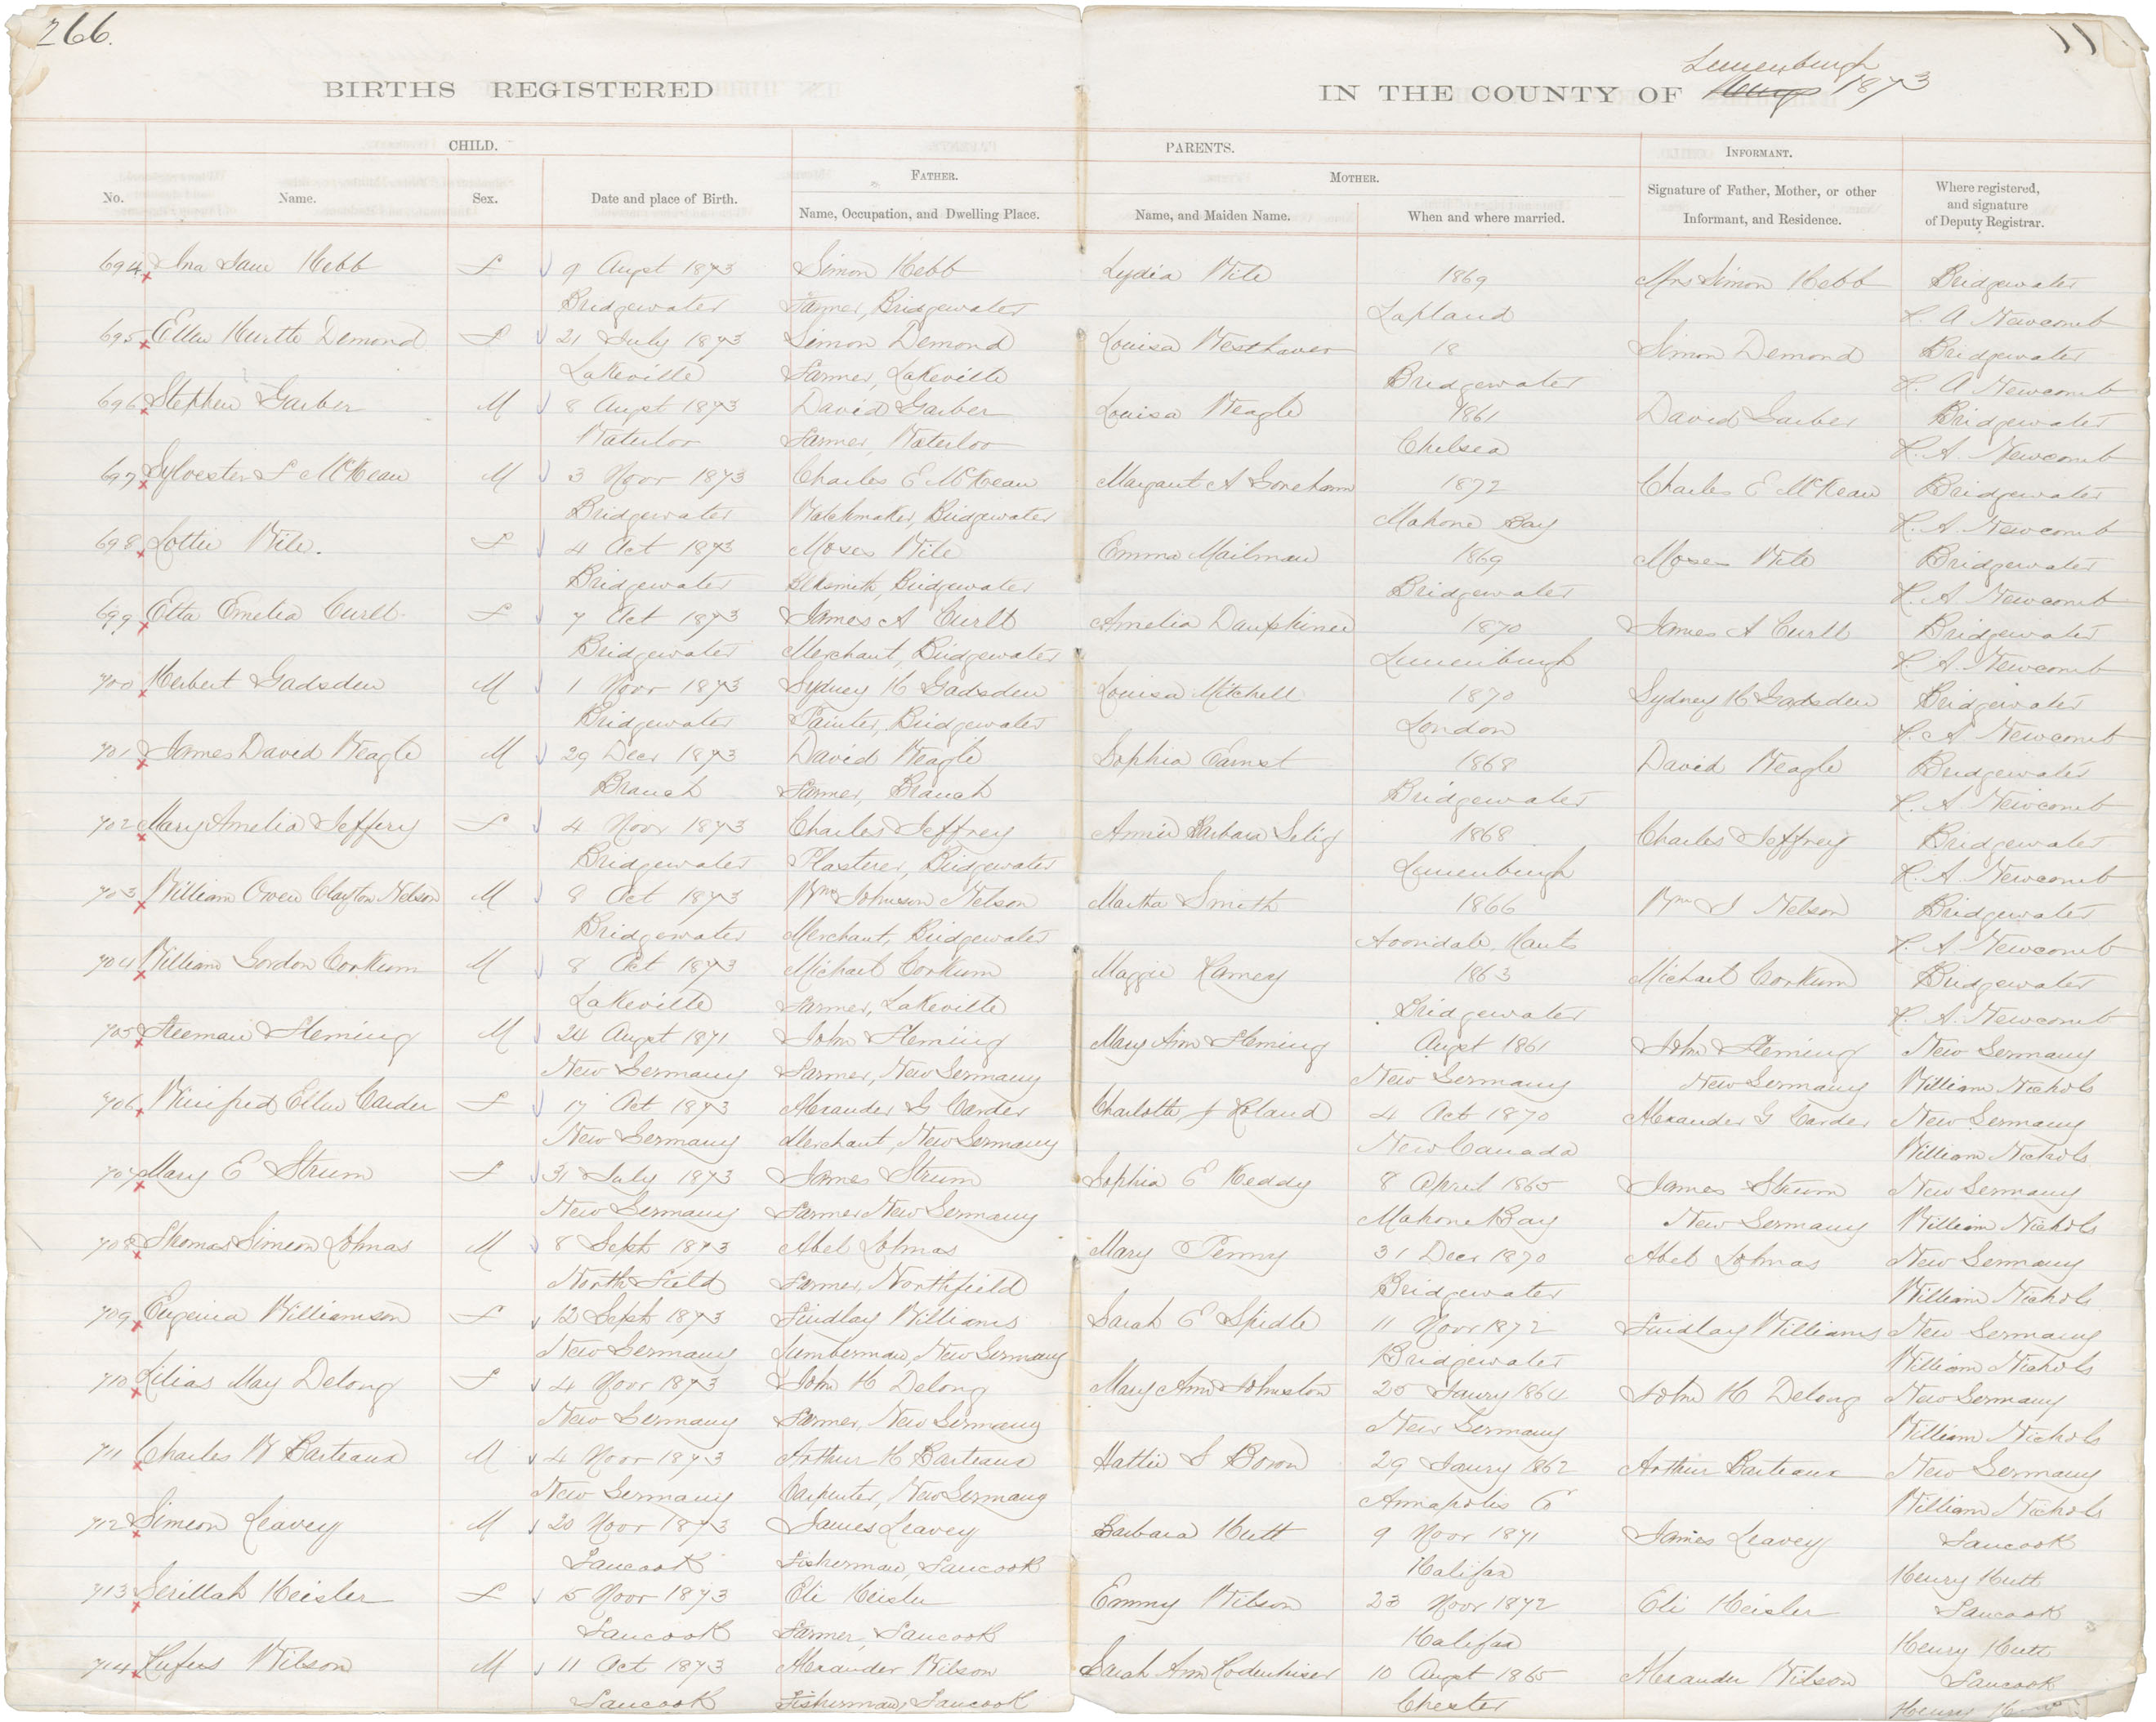 266.
11
BIRTHS REGISTERED IN THE COUNTY OF Lunenburgh 1873
CHILD. PARENTS. INFORMANT.
FATHER. MOTHER.
No. Name. Sex. Date and place of Birth. Name, Occupation, and Dwelling Place. Name, and Maiden Name. When and where married. Signature of Father, Mother, or other Informant, and Residence. Where registered, and signature of Deputy Registrar.
694 Ina Jane Hebb F 9 Augst 1873 Simon Hebb Lydia Wile 1869 Mrs Simon Hebb Bridgewater
Bridgewater Farmer, Bridgewater Lapland L. A Newcomb
695 Ellen Demond F 21 July 1873 Simon Demond Louisa Westhaver 18 Simon Demond Bridgewater
Lakeville Farmer, Lakeville Bridgewater L. A Newcomb
696 Stephen Garber M 8 Augst 1873 David Garber Louisa Weagle 1861 David Garber Bridgewater
Waterloo Farmer, Waterloo Chelsea L. A. Newcomb
697 Sylvester F McKean M 3 Novr 1873 Charles E McKean Margaret A 1872 Charles E McKean Bridgewater
Bridgewater Watchmaker, Bridgewater Mahone Bay L. A. Newcomb
698 Lottie Wile. F 4 Oct 1873 Moses Wile Emma Mailman 1869 Moses Wile Bridgewater
Bridgewater Blksmith, Bridgewater Bridgewater L. A Newcomb
699 Etta Emelia Curll F 7 Oct 1873 James A Curll Amelia Dauphinee 1870 James A Curll Bridgewater
Bridgewater Merchant, Bridgewater Lunenburgh L. A. Newcomb
700 Herbert Gadsden M 1 Novr 1873 Sydney H Gadsden Louisa Mitchell 1870 Sydney H Gadsden Bridgewater
Bridgewater Painter, Bridgewater London L. A Newcomb
701 James David Weagle M 29 Decr 1873 David Weagle Sophia Earnst 1868 David Weagle Bridgewater
Branch Farmer, Branch Bridgewater L. A Newcomb
702 Mary Amelia Jeffery F 4 Novr 1873 Charles Jeffrey Annie Barbara Selig 1868 Charles Jeffrey Bridgewater
Bridgewater Plasterer, Bridgewater Lunenburgh L. A. Newcomb
703 William Owen Clayton Nelson M 8 Oct 1873 Wm Johnson Nelson Martha Smith 1866 Wm J Nelson Bridgewater
Bridgewater Merchant, Bridgewater Avondale, Hants L. A. Newcomb
704 William Gordon Corkum M 8 Oct 1873 Michael Corkum Maggie Ramey 1863 Michael Corkum Bridgewater
Lakeville Farmer, Lakeville Bridgewater L. A. Newcomb
705 Freeman Fleming M 24 Augst 1871 John Fleming Mary Ann Fleming Augst 1861 John Fleming New Germany
New Germany Farmer, New Germany New Germany New Germany William Nichols
706 Winifred Ellen Carder F 17 Oct 1873 Alexander G Carder Charlotte J Roland 4 Oct 1870 Alexander G Carder New Germany
New Germany Merchant, New Germany New Canada William Nichols
707 Mary E Strum F 31 July 1873 James Strum Sophia E Keddy 8 April 1865 James Strum New Germany
New Germany Farmer New Germany Mahone Bay New Germany William Nichols
708 Thomas Simeon Lohnas M 8 Sept 1873 Abel Lohnas Mary Penny 31 Decr 1870 Abel Lohnas New Germany
North Field Farmer, Northfield Bridgewater William Nichols
709 Eugenia Williamson F 12 Sept 1873 Findlay Williams Sarah E Spidle 11 Novr 1872 Findlay Williams New Germany
New Germany Lumberman, New Germany Bridgewater William Nichols
710 Lilias May Delong F 4 Novr 1873 John H Delong Mary Ann Johnston 25 Jaury 1864 John H Delong New Germany
New Germany Farmer, New Germany New Germany William Nichols
711 Charles W Barteaux M 4 Novr 1873 Arthur H Barteaux Hattie S 29 Jaury 1862 Arthur Barteaux New Germany
New Germany Carpenter, New Germany Annapolis Co William Nichols
712 Simeon Leavey M 20 Novr 1873 James Leavey Barbara Hutt 9 Novr 1871 James Leavey Tancook
Tancook Fisherman, Tancook Halifax Henry Hutt
713 Serillah Heisler F 5 Novr 1873 Eli Heisler Emmy Wilson 23 Novr 1872 Eli Heisler Tancook
Tancook Farmer, Tancook Halifax Henry Hutt
714 Rufus Wilson M 11 Oct 1873 Alexander Wilson Sarah Ann Rodenhiser 10 Augst 1865 Alexander Wilson Tancook
Tancook Fisherman, Tancook Chester Henry Hutt